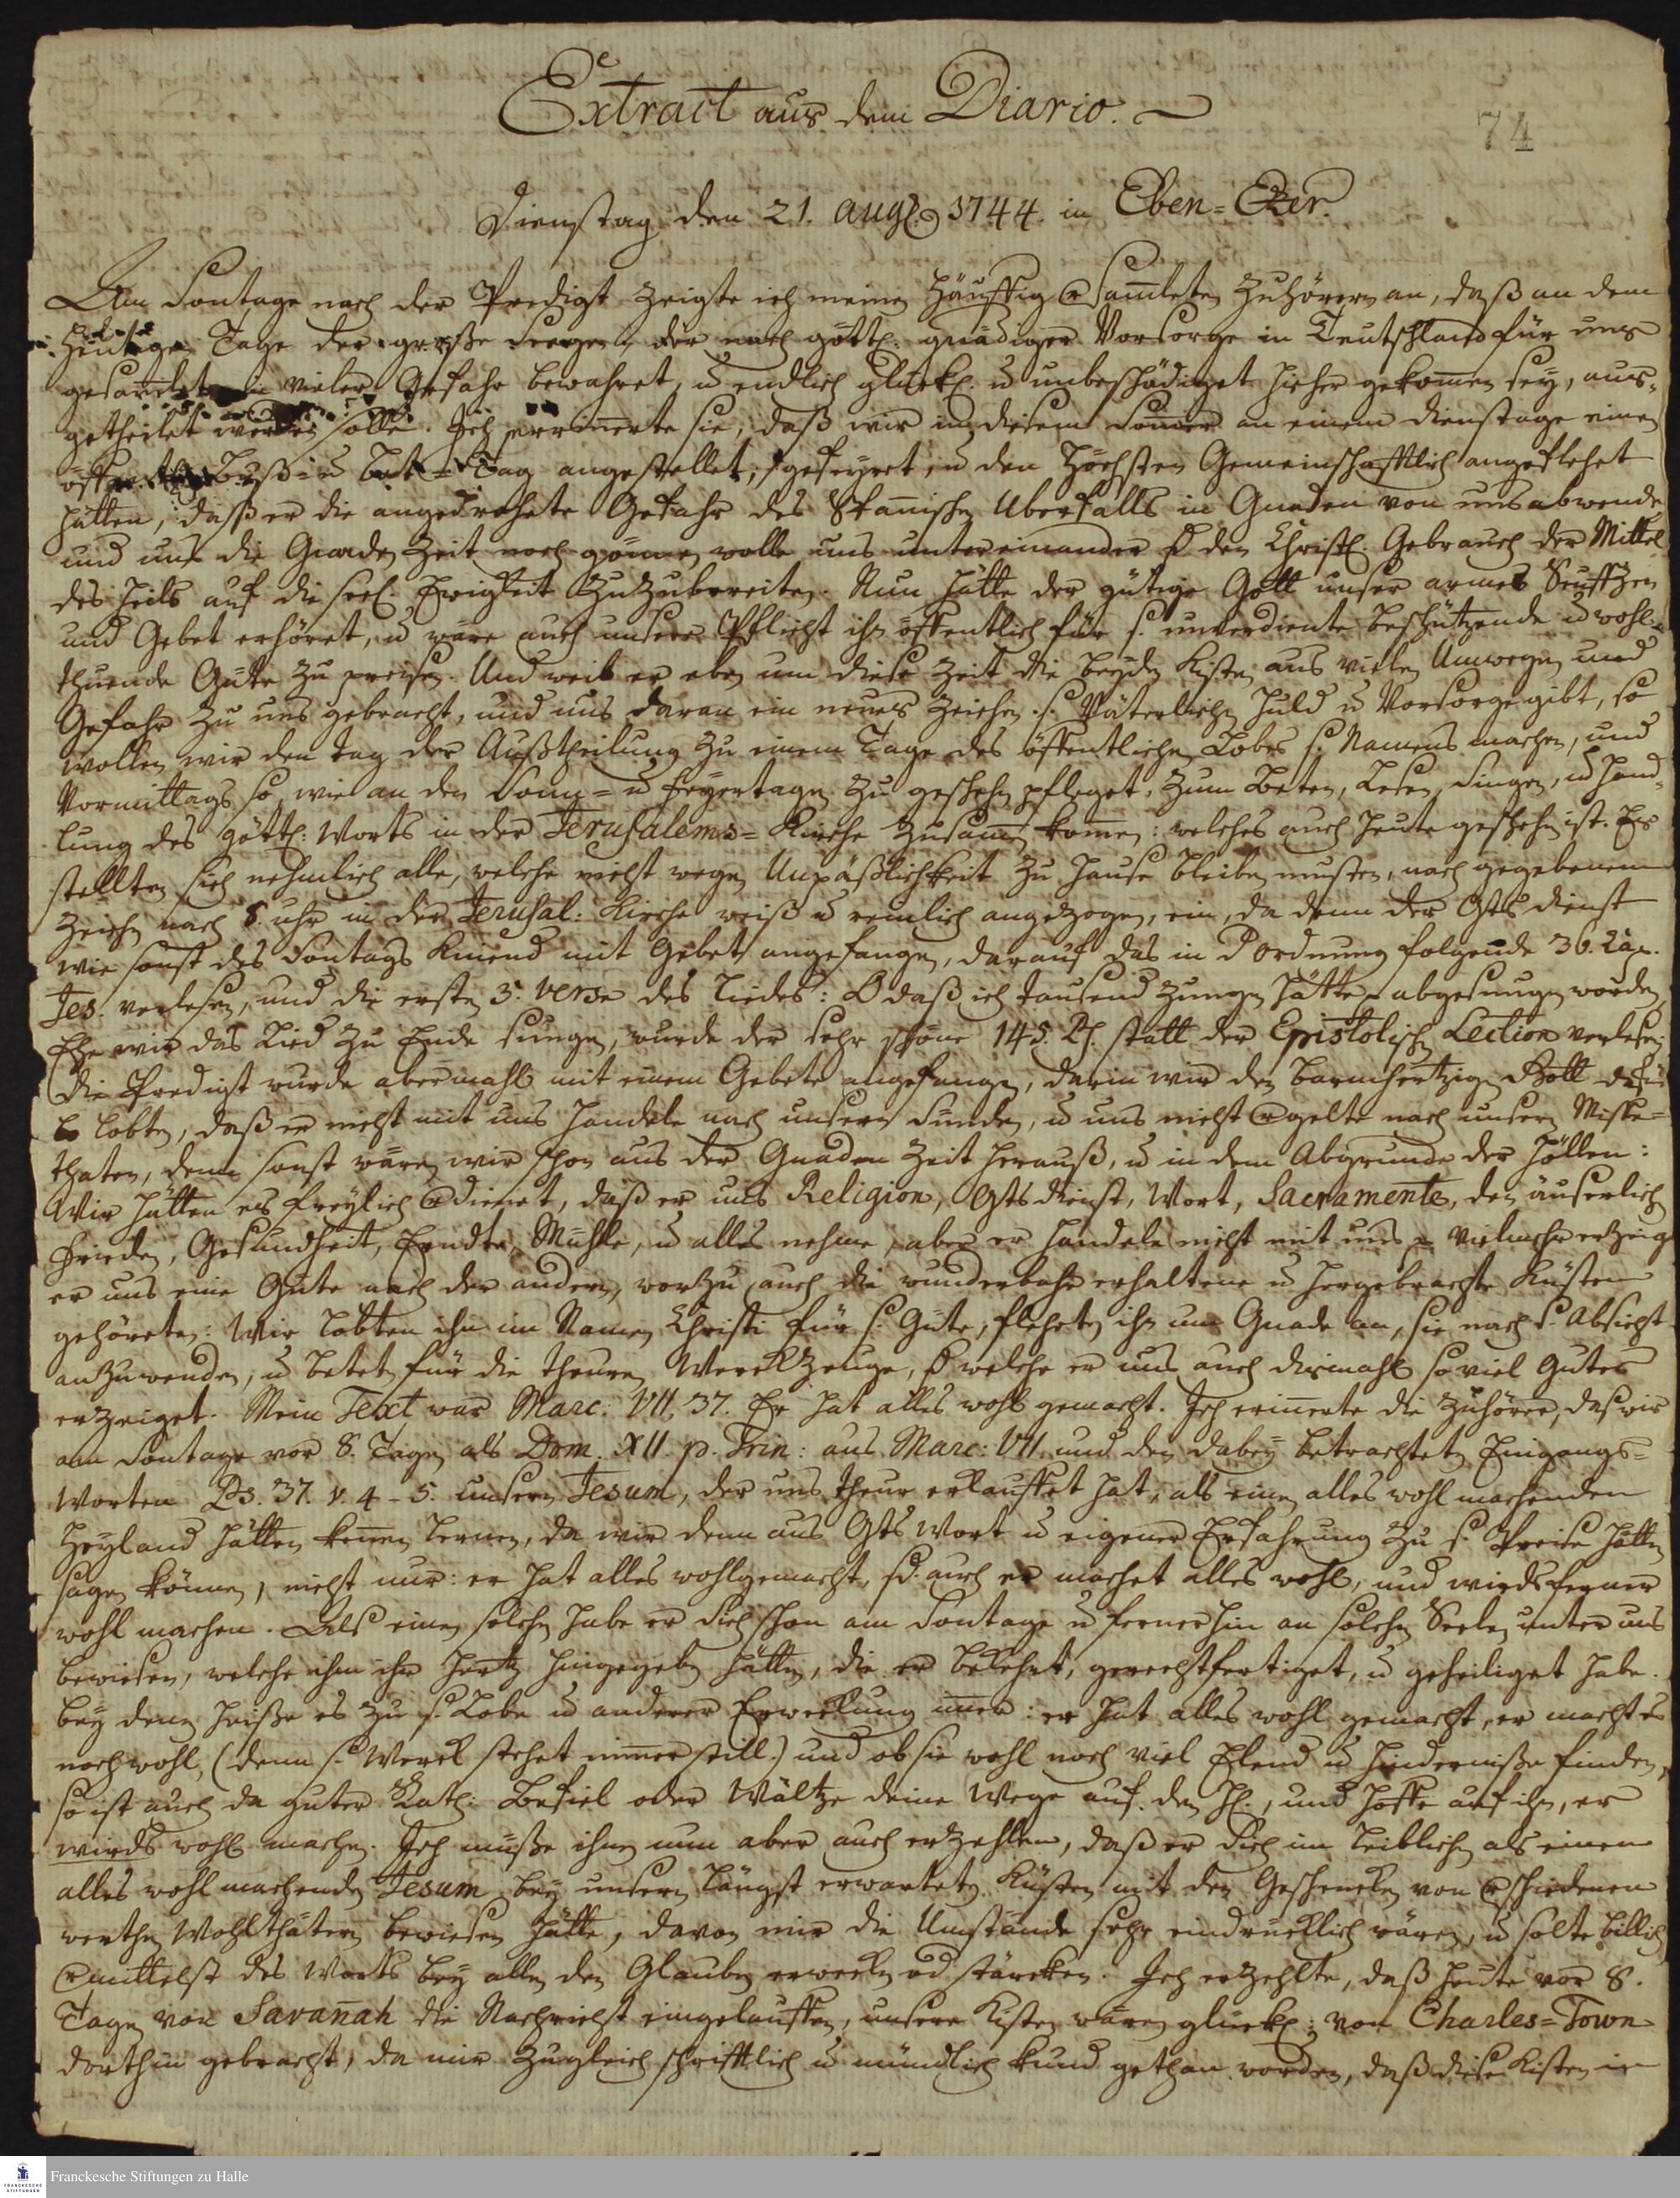 Extract aus dem Diario.
74
Dienstag den 21. Aug. 1744. in Eben-Ezer.
Am Sontage nach der Predigt zeigte ich meinen häuffig versamleten Zuhörern an, daß an dem
heutigen Tage der große Seegen, der nach göttl. gnädiger Vorsorge in Teutschland für uns
gesamlet, in vieler Gefahr bewahret, u. endlich glückl. u. unbeschädiget hieher gekommen sey, aus-
getheilet werden solle. Ich erinnerte sie, daß wir in diesem Sommer an einem Dienstage einen
Buß- u. Bet-Tag angestellet, gefeyret, u. den Höchsten Gemeinschafftlich angeflehet
hätten, daß er die angedrohete Gefahr des Spanischen Uberfalls in Gnaden von uns abwende
und uns die Gnaden Zeit noch gönnen wolle uns untereinander durch den Christl. Gebrauch der Mittel
des Heils auf die seel. Ewigkeit zuzubereiten. Nun hätte der gütige Gott unser armes Seuffzen
und Gebet erhöret, u. wäre auch unsere Pflicht ihn öffentlich für s. unverdiente beschützende u. wohl-
thuende Güte zu preisen. Und weil er eben um diese Zeit die beyden Kisten aus vielen Umwegen und
Gefahr zu uns gebracht, und uns daran ein neues Zeichen s. Väterlichen Huld u. Vorsorge gibt, so
wollen wir den Tag der Außtheilung zu einem Tage des öffentlichen Lobes s. Namens machen, und
Vormittags so, wie an den Sonn- u. Feyertagen zu geschehen pfleget, zum Beten, Lesen, Singen, u. Hand-
lung des göttl: Worts in der Jerusalems-Kirche zusammen kommen: welches auch heute geschehen ist. Es
stellten sich nehmlich alle, welche nicht wegen Unpäßlichkeit zu Hause bleiben musten, nach gegebenem
Zeichen nach 8. uhr in der Jerusal: Kirche weiß u. reinlich angezogen, ein, da denn der Gts dienst
wie sonst des Sontags kniend mit Gebet angefangen, darauf das in der Ordnung folgende 36. Cap.
Jes. verlesen, und die ersten 5. Verse des Liedes: O daß ich tausend Zungen hätte abgesungen worden
Ehe wir das Lied zu Ende sungen, wurde der sehr schöne 145. Ps. statt der Epistolischen Lection verlesen;
Die Predigt wurde abermahls mit einem Gebete angefangen, darin wir den barmhertzigen Gott dafür
lobten, daß er nicht mit uns handele nach unsern Sünden, u. uns nicht vergelte nach unserer Misse-
thaten, denn sonst wären wir schon aus der Gnaden Zeit herauß, u. in dem Abgrunde der Höllen:
Wir hätten es freylich verdienet, daß er uns Religion, Gts dienst, Wort, Sacramente, den äuserlichen
Frieden, Gesundheit, Erndte, Mühle, u. alles nehme, aber er handele nicht mit uns p. vielmehr erzeige
er uns eine Güte nach der andern, worzu auch die wunderbahr erhaltene u. hergebrachte Küsten
gehöreten: Wir lobten ihn im Namen Christi für s. Güte, fleheten ihn um Gnade an, sie nach s. Absicht
anzuwenden, u. beteten für die theuren Werckzeuge, durch welche er uns auch dismahl so viel Gutes
erzeiget. Mein Text war Marc: VII, 37. Er hat alles wohl gemacht. Ich erinnerte die Zuhörer, daß wir
am Sontage vor 8. Tagen als Dom. XII. p. Trin: aus Marc: VII. und den dabey betrachteten Eingangs-
Worten Ps. 37. v. 4-5. unsern Jesum, der uns theur erkauffet hat, als einen alles wohl machenden
Heyland hätten kennen lernen, da wir denn aus Gts Wort u. eigener Erfahrung zu s. Preise hätten
sagen können, nicht nur: er hat alles wohlgemacht, sd. auch er machet alles wohl, und wirds ferner
wohl machen. Als einen solchen habe er sich schon am Sontage u. fernerhin an solchen Seelen unter uns
bewiesen, welche ihm ihr Hertz hingegeben hätten, die er bekehret, gerechtfertiget, u. geheiliget habe.
Bey denen heiße es zu s. Lobe u. anderer Erweckung immer: er hat alles wohl gemacht, er macht es
noch wohl, (denn s. Werck stehet nimmer still.) und ob sie wohl noch viel Elend u. Hinderniße finden,
so ist auch da guter Rath: Befiel oder Wältze deine Wege auf den H., und hoffe auf ihn, er
wirds wohl machen. Ich müße ihnen nun aber auch erzehlen, daß er sich im leiblichen als einen
alles wohl machenden Jesum bey unsern längst erwarteten Küsten mit den Geschencken von verschiedenen
werthen Wohlthätern bewiesen hätte, davon mir die Umstände sehr eindrücklich wären, u. solte billich
vermittelst des Worts bey allen den Glauben erwecken od. stärcken. Ich erzehlte, daß heute vor 8.
Tagen von Savanah die Nachricht eingelauffen, unsere Kisten wären glückl: von Charles-Town
dorthin gebracht, da mir zugleich schrifftlich u. mündlich kund gethan worden, daß diese Kisten in
Franckesche Stiftungen zu Halle
FRANCKESCHE STIFTUNGEN